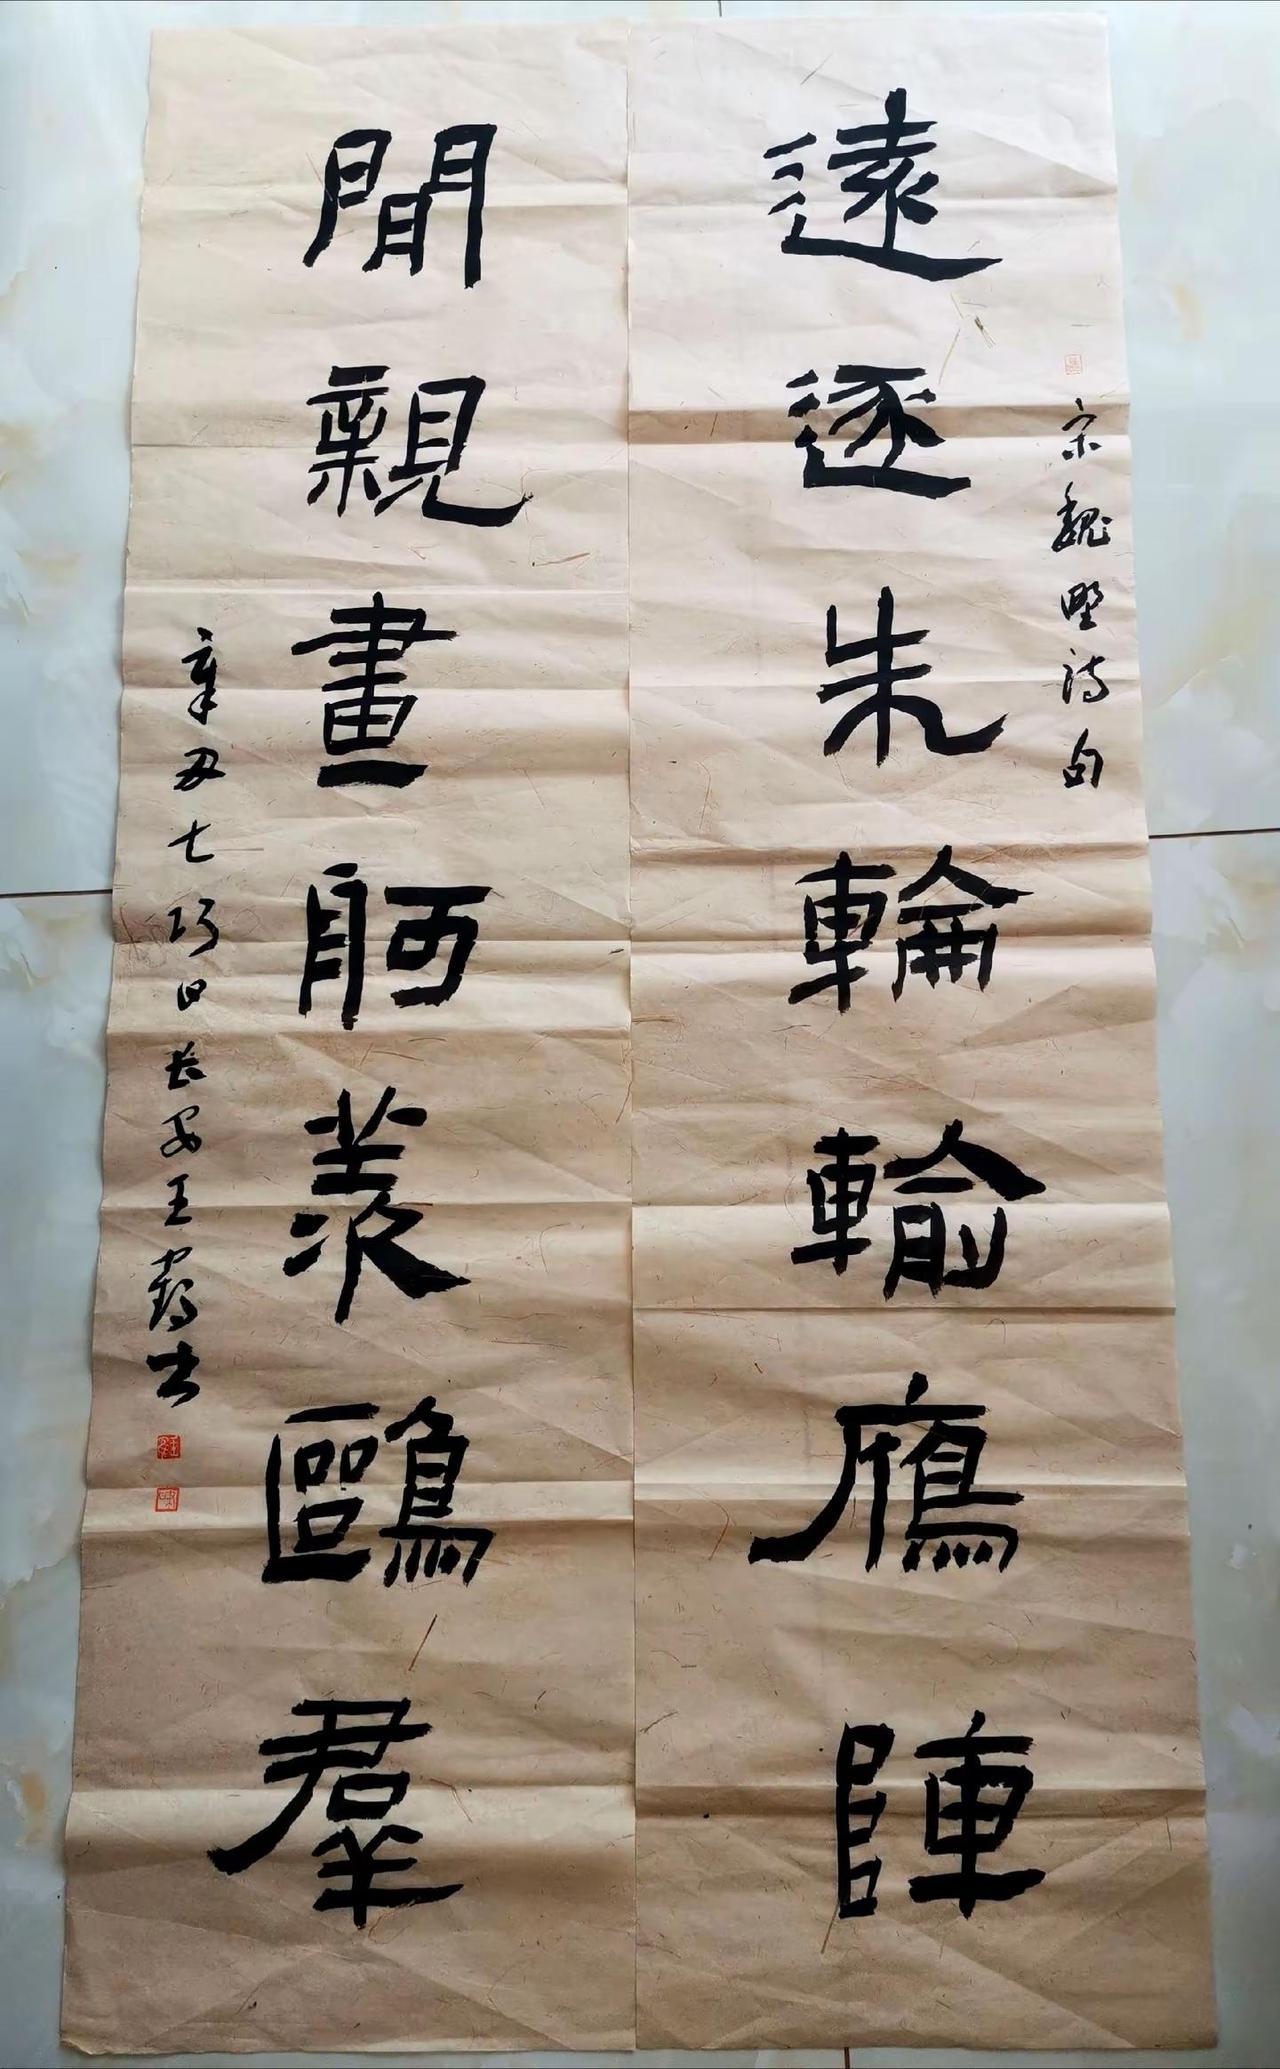 遠逐朱輪輸鴈陣
宋魏野詩句
閒親畫舸羨鷗羣
辛丑七巧日長安王書